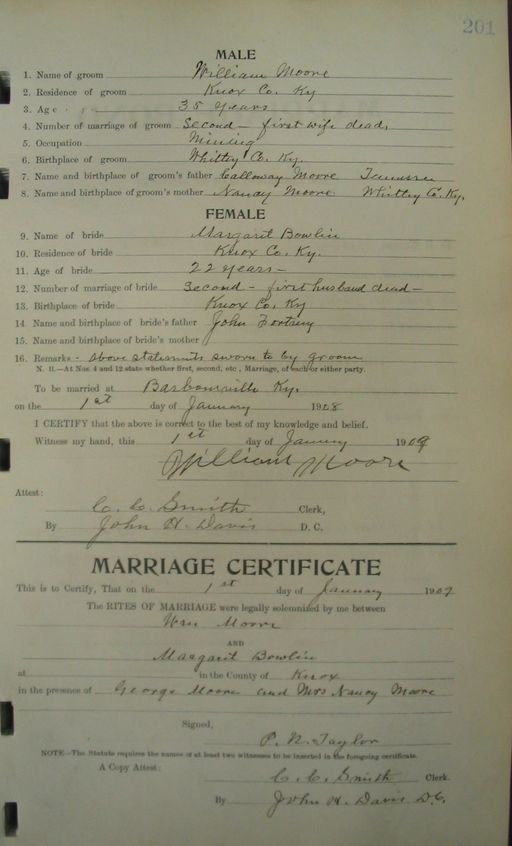 201
MALE
1. Name of groom William Moore
2. Residence of groom Knox Co. Ky
3. Age 35 years
4. Number of marriage of groom Second – first wife dead,
5. Occupation Mining
6. Birthplace of groom Whitley Co. Ky.
7. Name and birthplace of groom's father Calloway Moore
8. Name and birthplace of groom's mother Nancy Moore Whitley Co. Ky.
FEMALE
9. Name of bride Margarit Bowlin
10. Residence of bride Knox Co. Ky.
11. Age of bride 22 years –
12. Number of marriage of bride Second – first husband dead –
13. Birthplace of bride Knox Co. Ky
14. Name and birthplace of bride's father John
15. Name and birthplace of bride's mother
16. Remarks - above statements sworn to by groom
N. B.—At Nos. 4 and 12 state whether first, second, etc., Marriage, of each or either party.
To be married at Barbourville Ky.
on the 1st day of January 1908
I CERTIFY that the above is correct to the best of my knowledge and belief.
Witness my hand, this 1st day of January 1909
William Moore
Attest:
C. C. Smith Clerk,
By John H. Davis D. C.
MARRIAGE CERTIFICATE
This is to Certify, That on the 1st day of January 1909
The RITES OF MARRIAGE were legally solemnized by me between
Wm Moore
AND
Margarit Bowlin
at in the County of Knox
in the presence of George Moore and Mrs Nancy Moore
Signed,
P. N. Taylor
NOTE—The Statute requires the names of at least two witnesses to be inserted in the foregoing certificate.
A Copy Attest:
C. C. Smith Clerk.
By John H. Davis D.C.